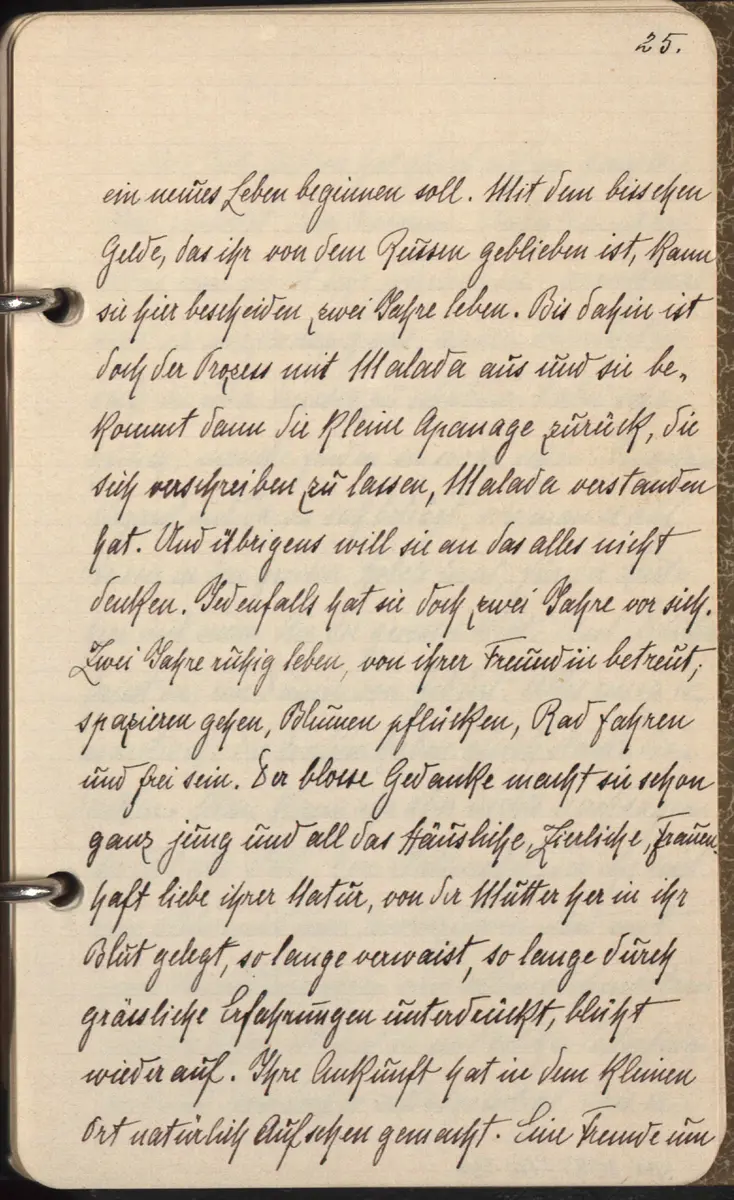 25.
ein neues Leben beginnen soll. Mit dem bisschen
Gelde, das ihr von dem Russen geblieben ist, kann
sie hier bescheiden zwei Jahre leben. Bis dahin ist
doch der Prozess mit Malada aus und sie be-
kommt dann die kleine Apanage zurück, die
sich verschreiben zu lassen, Malada verstanden
hat. Und übrigens will sie an das alles nicht
denken. Jedenfalls hat sie doch zwei Jahre vor sich.
Zwei Jahre ruhig leben, von ihrer Freundin betreut;
spazieren gehen, Blumen pflücken, Rad fahren
und frei sein. Der blosse Gedanke macht sie schon
ganz jung und all das Häusliche, Zierliche, Frauen-
haft liebe ihrer Natur, von der Mutter her in ihr
Blut gelegt, so lange verwaist, so lange durch
grässliche Erfahrungen unterdrückt, blüht
wieder auf. Ihre Ankunft hat in dem kleinen
Ort natürlich Aufsehen gemacht. Eine Fremde um